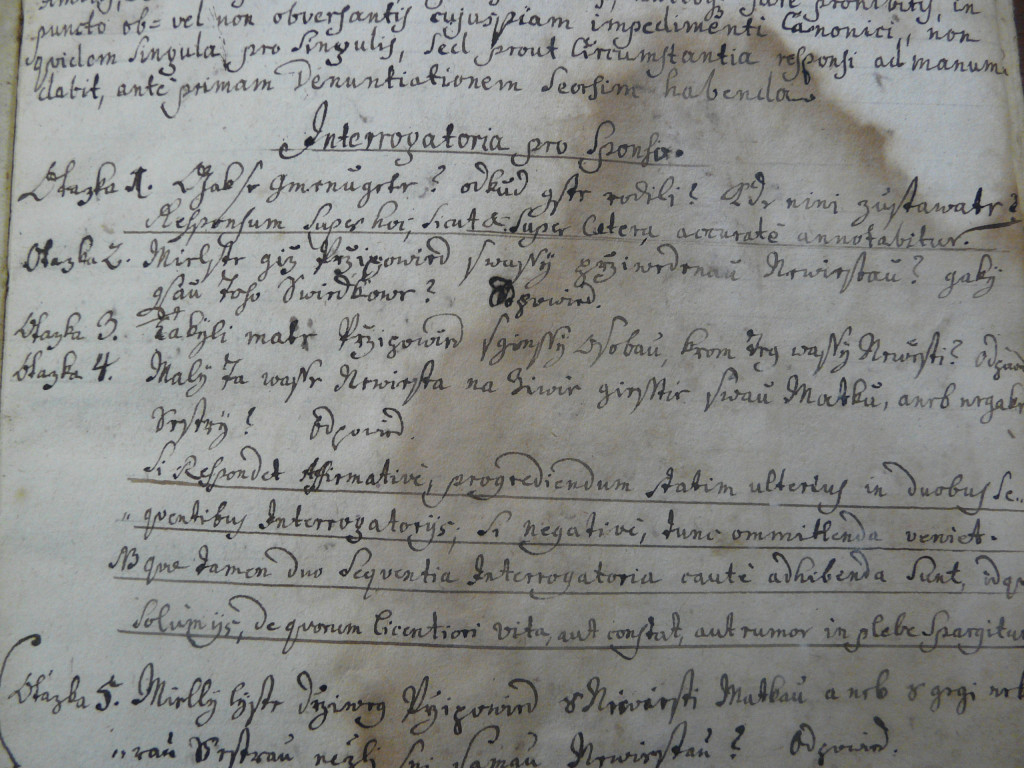 puncto ob= vel non obversantis cujuspiam impedimenti Canonici, non
quidem singula pro singulis, sed prout Circumstantia responsi ad manum
dabit, ante primam Denuntiationem Seorsim habenda.
Interrogatoria pro Sponso.
Otazka 1. Gak se Gmenugete? odkud gste rodili? Kde nini zustawate?
Responsum super hoc, sicut & super Cetera, accuratè annotabitur.
Otazka 2. Mielste giz Przipowied s wassy prziwedenau Newiestau? gaky
gsau toho Swiedkowe? Odpowied.
Otazka 3. mate Przipowied s ginssy Osobau, krom teg wassy Newiesti?
Otazka 4. Maly ta wasse Newiesta na ziwie giesstie swau Matku, aneb negake
Sestry? Odpowied.
Si Respondet Affirmativè, progrediendum statim ulterius in duobus Se=
quentibus Interrogatorijs; si negativè, tunc ommittenda veniet.
NB quæ tamen duo Sequentia Interrogatoria cautè adhibenda sunt, idq
solum ijs, de quorum licentiori vita, aut constat, aut rumor in plebe spargitur
Otazka 5. Mielly lyste drziweg Przipowied s Newiesti Matkau aneb s gegi
rau Sestrau nezli samau Newiestau? Odpowied.